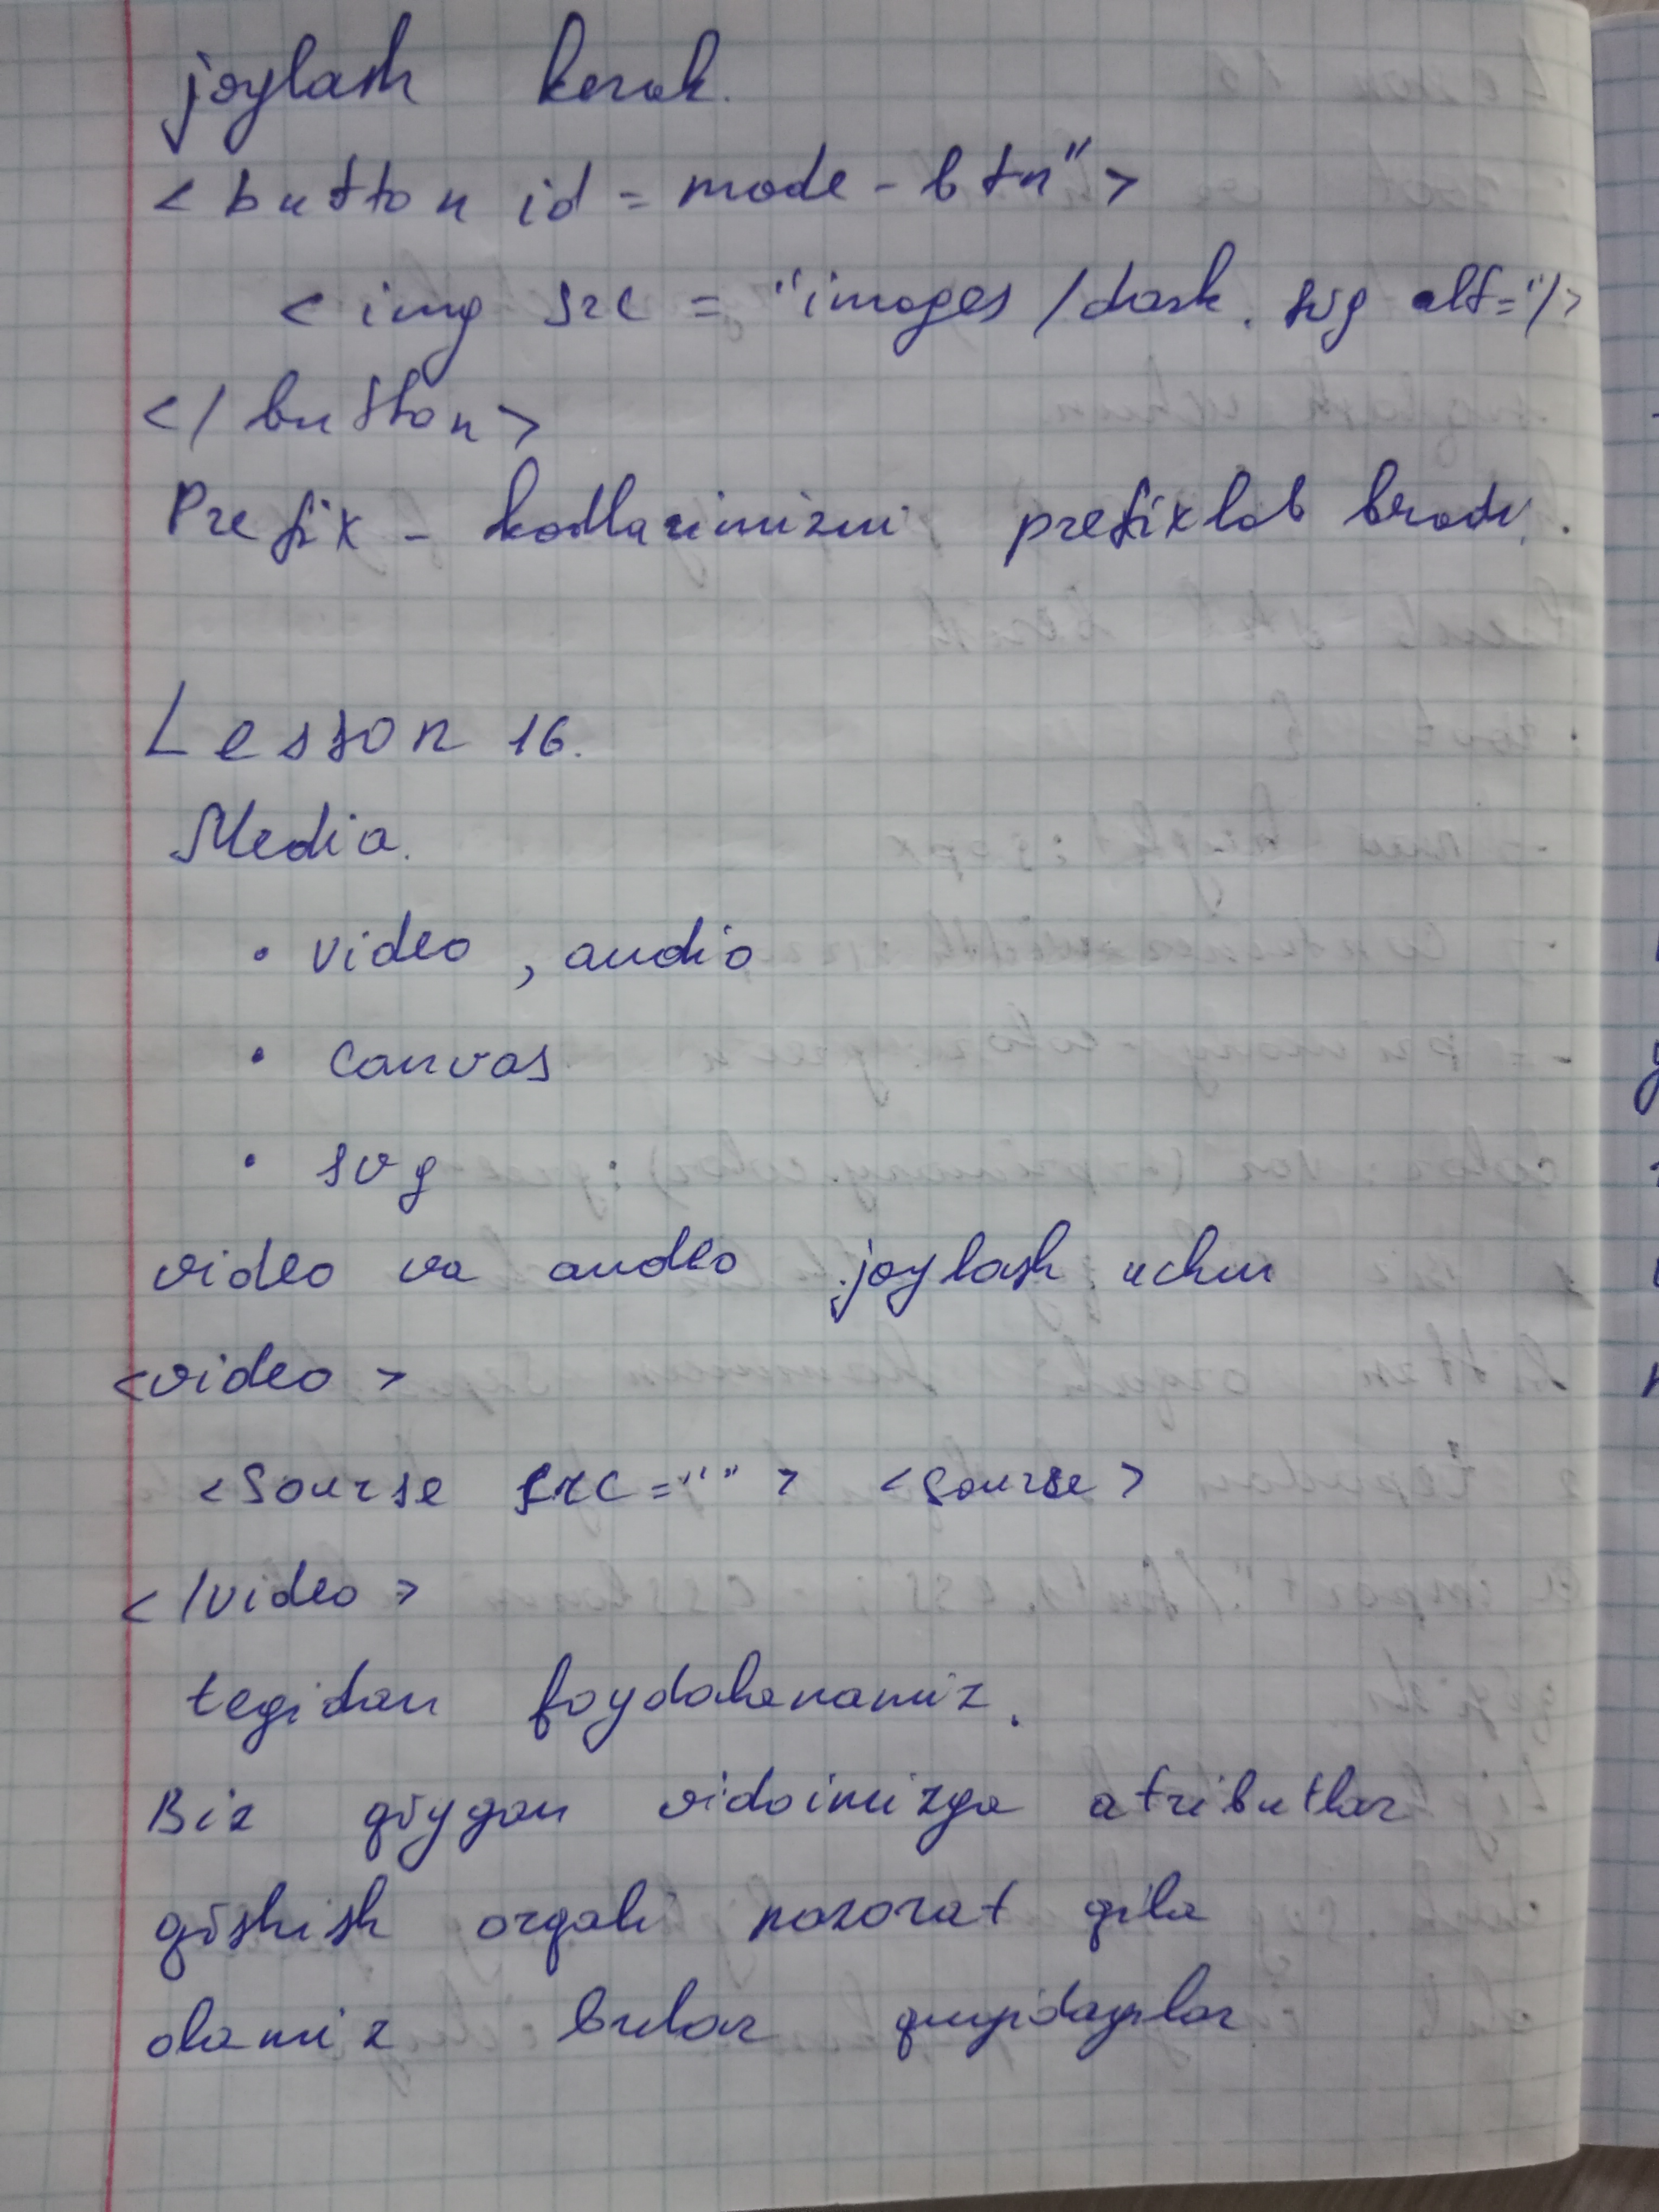 joylash kerak.
<button id = mode - btn">
<img src = "images /dark. svg alt="/>
</button>
Prefix - kodlarimizni prefixlab bradi.
Lesson 16.
Media.
• video , audio
• canvas
• svg
video va audeo joylash uchun
<video>
<sourse src="" > <sourse>
</video>
tegidan foydalanamiz.
Biz qōygan vidoimizga atributlar
qōshish orqali nazorat qila
olamiz bular quyidagilar